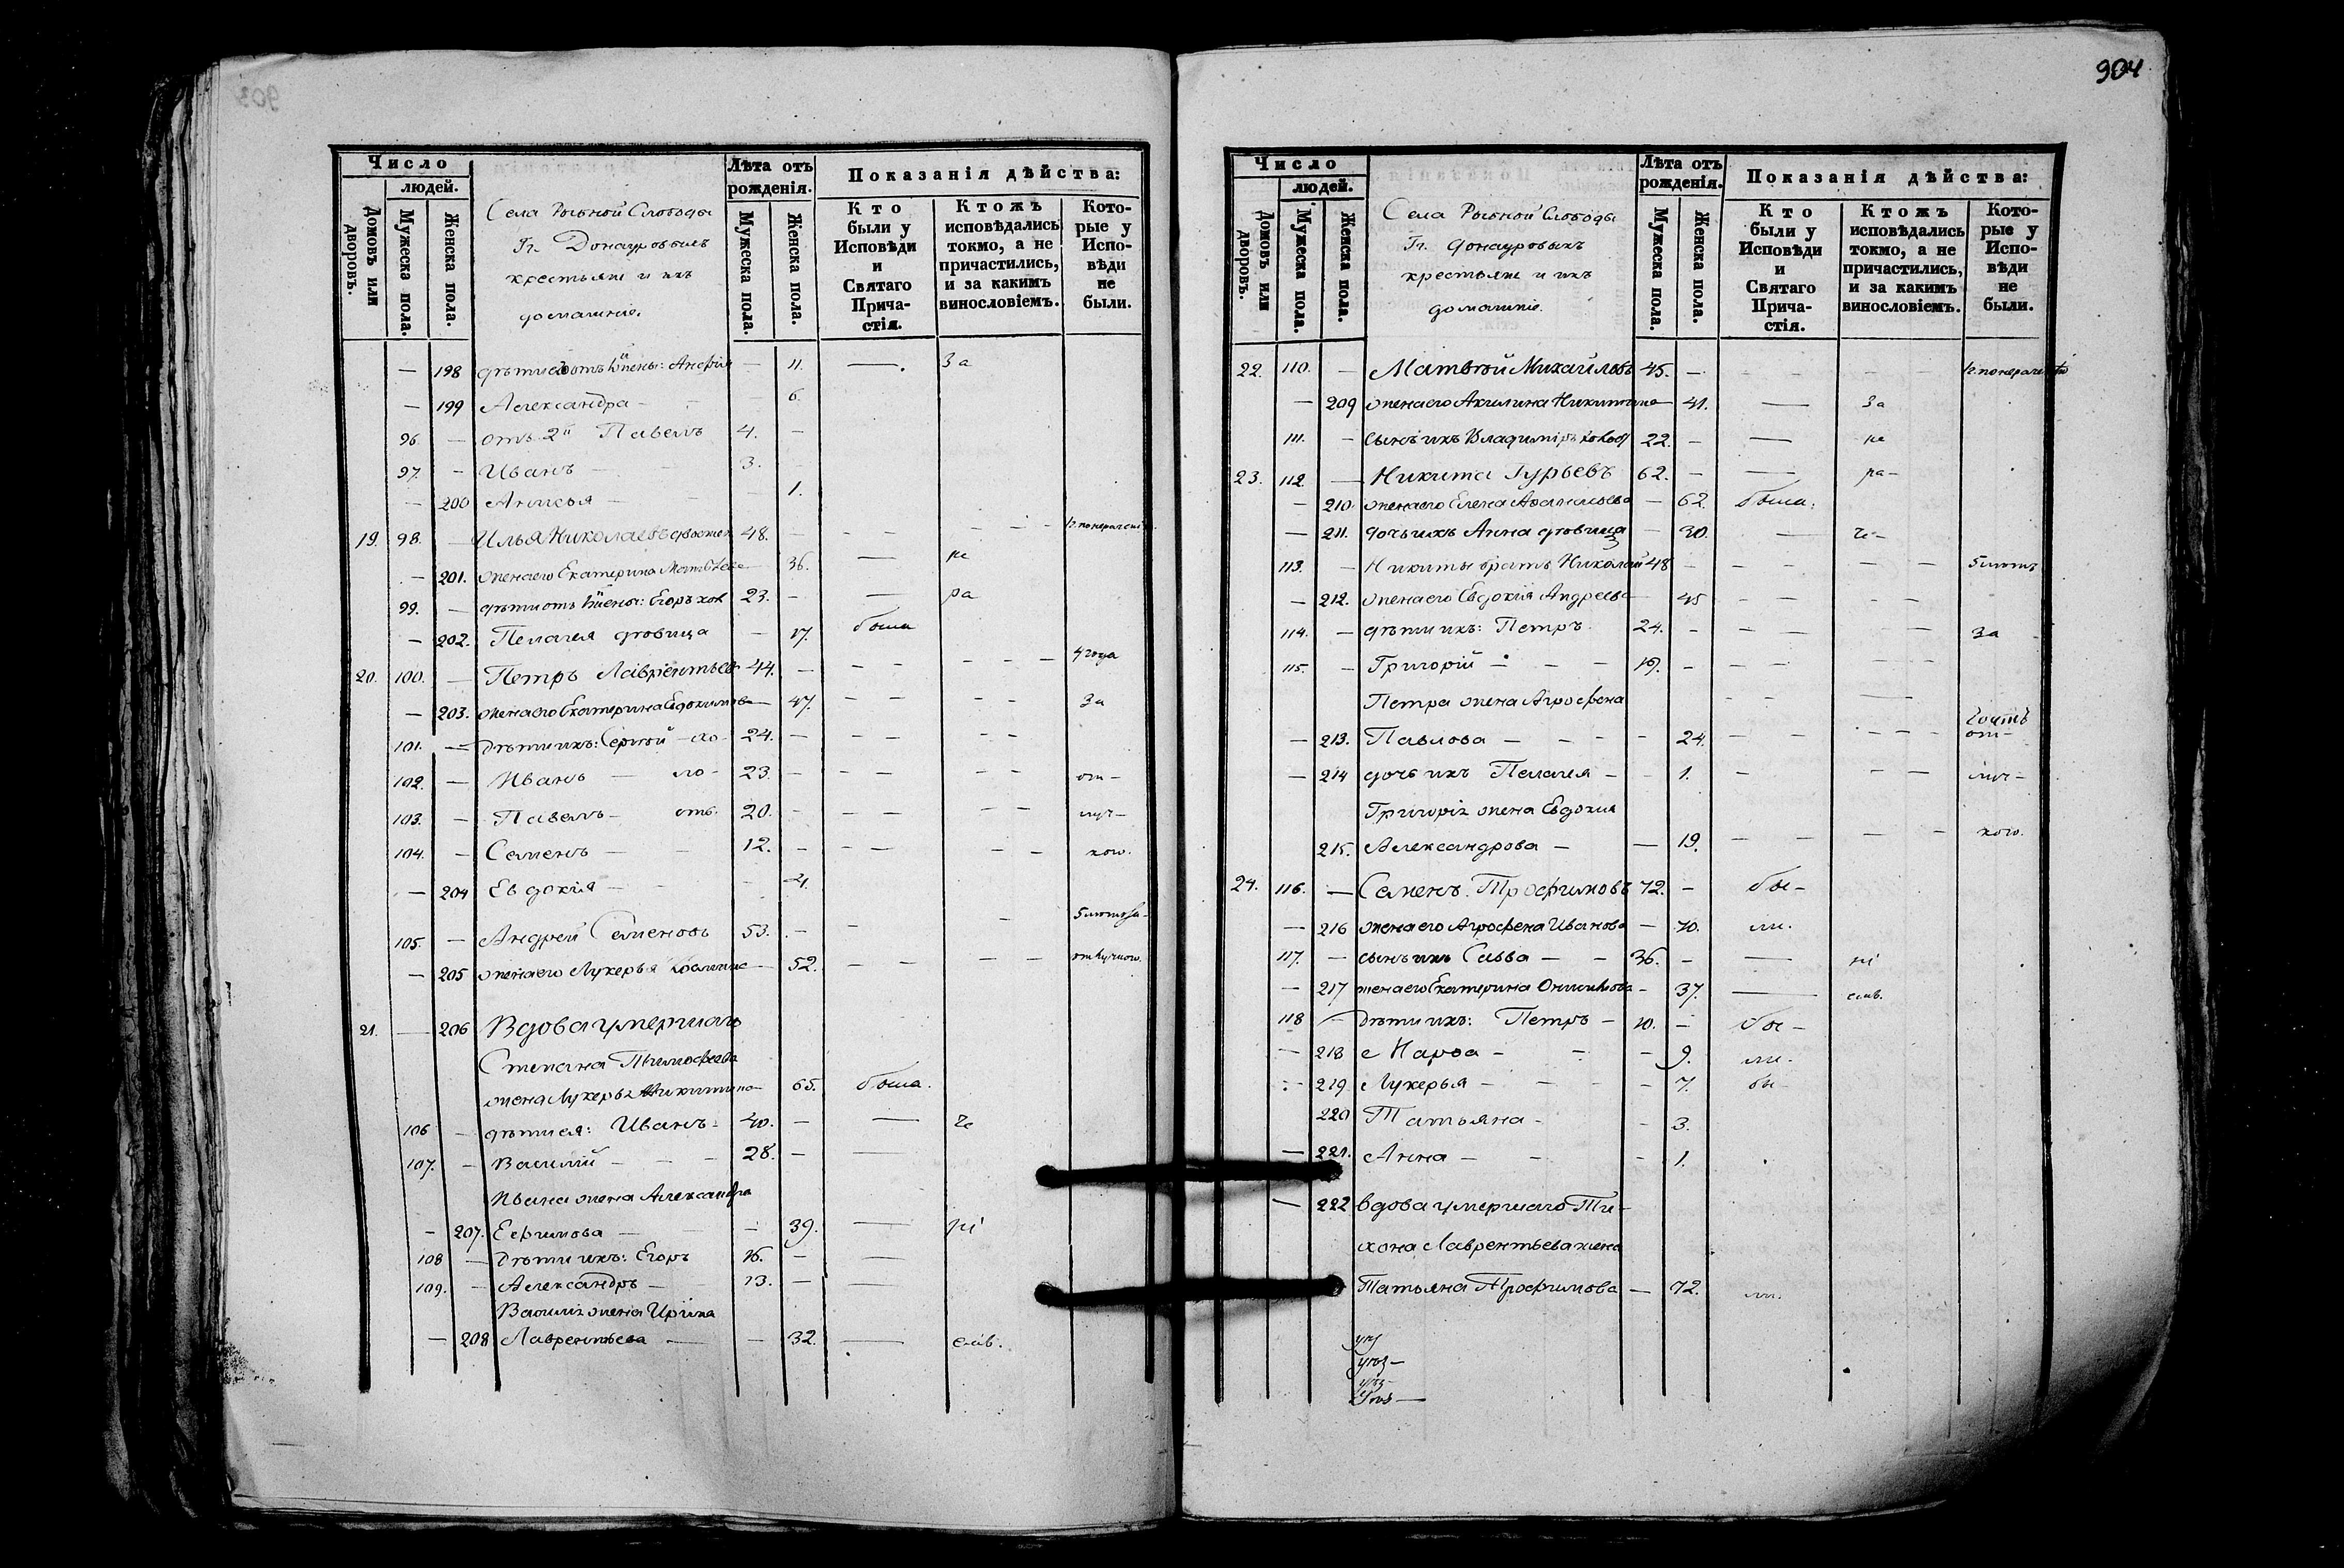 904
Число
людей.
Домовъ или дворовъ.
Мужеска пола.
Женска пола.
Села Рыбной Слободы
Гг. Донауровыхъ
крестьяне и ихъ
домашніе.
Лѣта отъ рожденія.
Мужеска пола.
Женска пола.
Показанія дѣйства:
Кто были у Исповѣди и Святаго Прича-стія.
Ктожъ исповѣдались токмо, а не причастились, и за какимъ винословіемъ.
Кото-рые у Испо-вѣди не были.
— 198 — 11. —. За
— 199 Александра — 6.
96. — отъ 2й Павелъ 4. —
97. — Иванъ — 3.
— 200 Анисья — 1.
19. 98. — Илья Николаевъ 48. —
— 201. жена его Екатерина Матвѣева — 36. — не
99. — дѣти отъ жены: Егоръ хол 23. — ра
— 202. Пелагея дѣвица — 17. была
20. 100. — Петръ Лаврентьевъ 44. — 4 года
— 203. жена его Екатерина Евдокимова — 47. За
101. — Дѣти ихъ: Сергѣй 24. —
102. — Иванъ — 23. — от-
103. — Павелъ — 20. — луч-
104. — Семенъ — 12. — кою.
— 204 Евдокія — 4.
105. — Андрей Семеновъ 53. — 5 лѣтъ за-
— 205 жена его Лукерья — 52. отлучкою.
21. — 206 Вдова умершаго
Степана Тимофеева
жена Лукерья Никитина — 65. была.
106 — дѣти ея: Иванъ 40. — че
107. — Василій — 28. —
Ивана жена Александра
— 207. Ефимова — 39. — ні
108 — Дѣти ихъ: Егоръ 16. —
109. — Александръ — 13. —
Василія жена Ирина
— 208 Лаврентьева — 32. — емъ.
Число
людей.
Домовъ или дворовъ.
Мужеска пола.
Женска пола.
Села Рыбной Слободы
Гг. Донауровыхъ
крестьяне и ихъ
домашніе.
Лѣта отъ рожденія.
Мужеска пола.
Женска пола.
Показанія дѣйства:
Кто были у Исповѣди и Святаго Прича-стія.
Ктожъ исповѣдались токмо, а не причастились, и за какимъ винословіемъ.
Кото-рые у Испо-вѣди не были.
22. 110. — Матвѣй Михайловъ 45. —
— 209 жена его Акилина Никитина — 41. — За
111. — сынъ ихъ Владиміръ холост 22. — не
23. 112. — Никита Гурьевъ 62. — ра-
— 210. жена его Елена — 62. была.
— 211. дочь ихъ Анна дѣвица — 30. — че-
113. — Никиты братъ Николай 48 — 5 лѣтъ
— 212. жена его Евдокія Андреева 45
114. — дѣти ихъ: Петръ 24. — За
115. — Григорій — 19. —
Петра жена Агрофена
— 213. Павлова — 24. от-
— 214 дочь ихъ Пелагея — 1. луч-
Григорія жена Евдокия
215. Александрова — 19. кою.
24. 116. — Семенъ Трофимовъ 72. — бы-
— 216 жена его Агрофена Иванова — 70. ли.
117. — сынъ ихъ Савва — 36. — ні
— 217 жена его Екатерина — 37. — емъ.
118 — Дѣти ихъ: Петръ — 10. — бы-
— 218 Марфа — 9. ли.
— 219 Лукерья — 7. бы
220 Татьяна — 3.
— 221. Анна — 1.
— 222 вдова умершаго Ти-
хона Лаврентьева жена
Татьяна Трофимова — 72. ли.